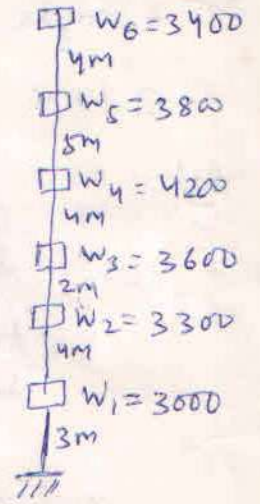 W6 = 3400
4m
W5 = 3800
5m
W4 = 4200
4m
W3 = 3600
2m
W2 = 3300
4m
W1 = 3000
3m